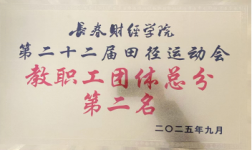 长春财经学院
第二十二届田径运动会
教职工团体总分
第二名
二〇二五年九月